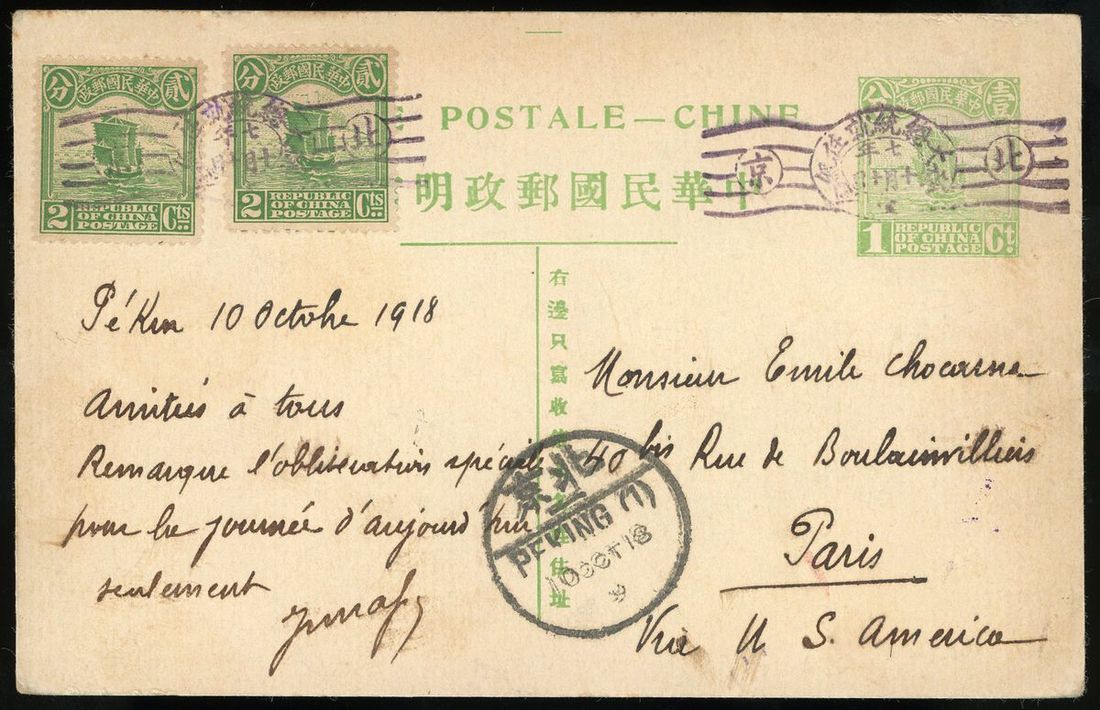 貳 中華民國郵政 分
2 REPUBLIC OF CHINA POSTAGE Cts
貳 中華民國郵政 分
2 REPUBLIC OF CHINA POSTAGE Cts
北
POSTALE — CHINE
中華民國郵政明
壹 中華民國郵政 分
1 REPUBLIC OF CHINA POSTAGE Ct.
北 大總統就任 七年 十月十日 京
右邊只寫收
住址
Pékin 10 Octobre 1918
Amitiés à tous
Remarque l'oblitération spéciale
pour la journée d'aujourd'hui
seulement
Monsieur Emile Chocarne
40 bis Rue de Boulainvilliers
Paris
Via U S. America
北京
PEKING (1)
10 OCT 18